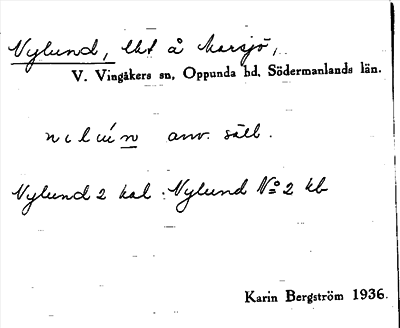 Nylund, lht å Marsjö,
V. Vingåkers sn, Oppunda hd, Södermanlands län.
anv. säll.
Nylund 2 kal. Nylund No 2 kb
Karin Bergström 1936.